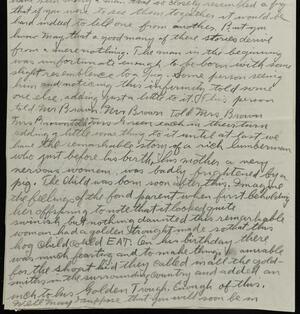 that if you were to see them together it would be
hard indeed to tell one from another. But you
know May that a good many of these stories derive
from a mere nothing. The man in the beginning
was unfortunate enough to be born with some
slight resemblance to a pig. Some person seeing
him and noticing this infirmity told some
one else adding just a little to it. This person
told Mr Brown. Mr Brown told Mrs Brown
adding a little something to it until at last we
have the remarkable story of a rich lumberman
who just before his birth, his mother a very
nervous woman, was badly frightened by a
pig. The child was born soon after this. Imagine
the feelings of the fond parent when first beholding
her offspring to note that it looked quite
swinish. By nothing daunted this remarkable
woman had a golden trough made so that this
hog child could EAT. On his birthday there
was much feasting and to make things amiable
for the they called in all the gold-
smiths in the surrounding country and added an
inch to his Golden Trough. Enough of this.
Well May I suppose that you will soon be in